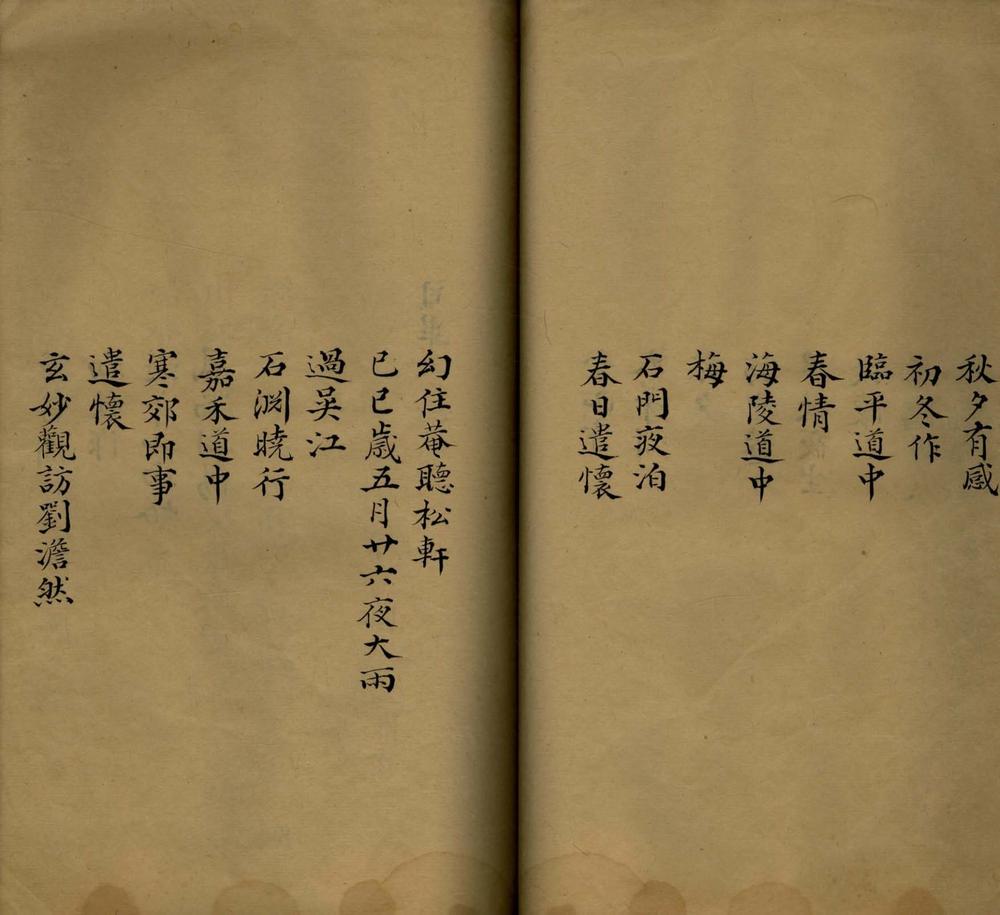 秋夕有感
初冬作
臨平道中
春情
海陵道中
梅
石門夜泊
春日遣懷
幻住菴聽松軒
己巳歲五月廿六夜大雨
過吳江
石渕曉行
嘉禾道中
寒郊即事
遣懷
玄妙觀訪劉澹然